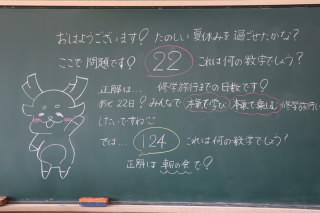 おはようございます! たのしい夏休みを過ごせたかな?
ここで問題です! 22 これは何の数字でしょう?
正解は… 修学旅行までの日数です!
あと22日! みんなで本気で学び本気で楽しむ修学旅行に
したいですね
では… 124 これは何の数字でしょう?
正解は 朝の会で!